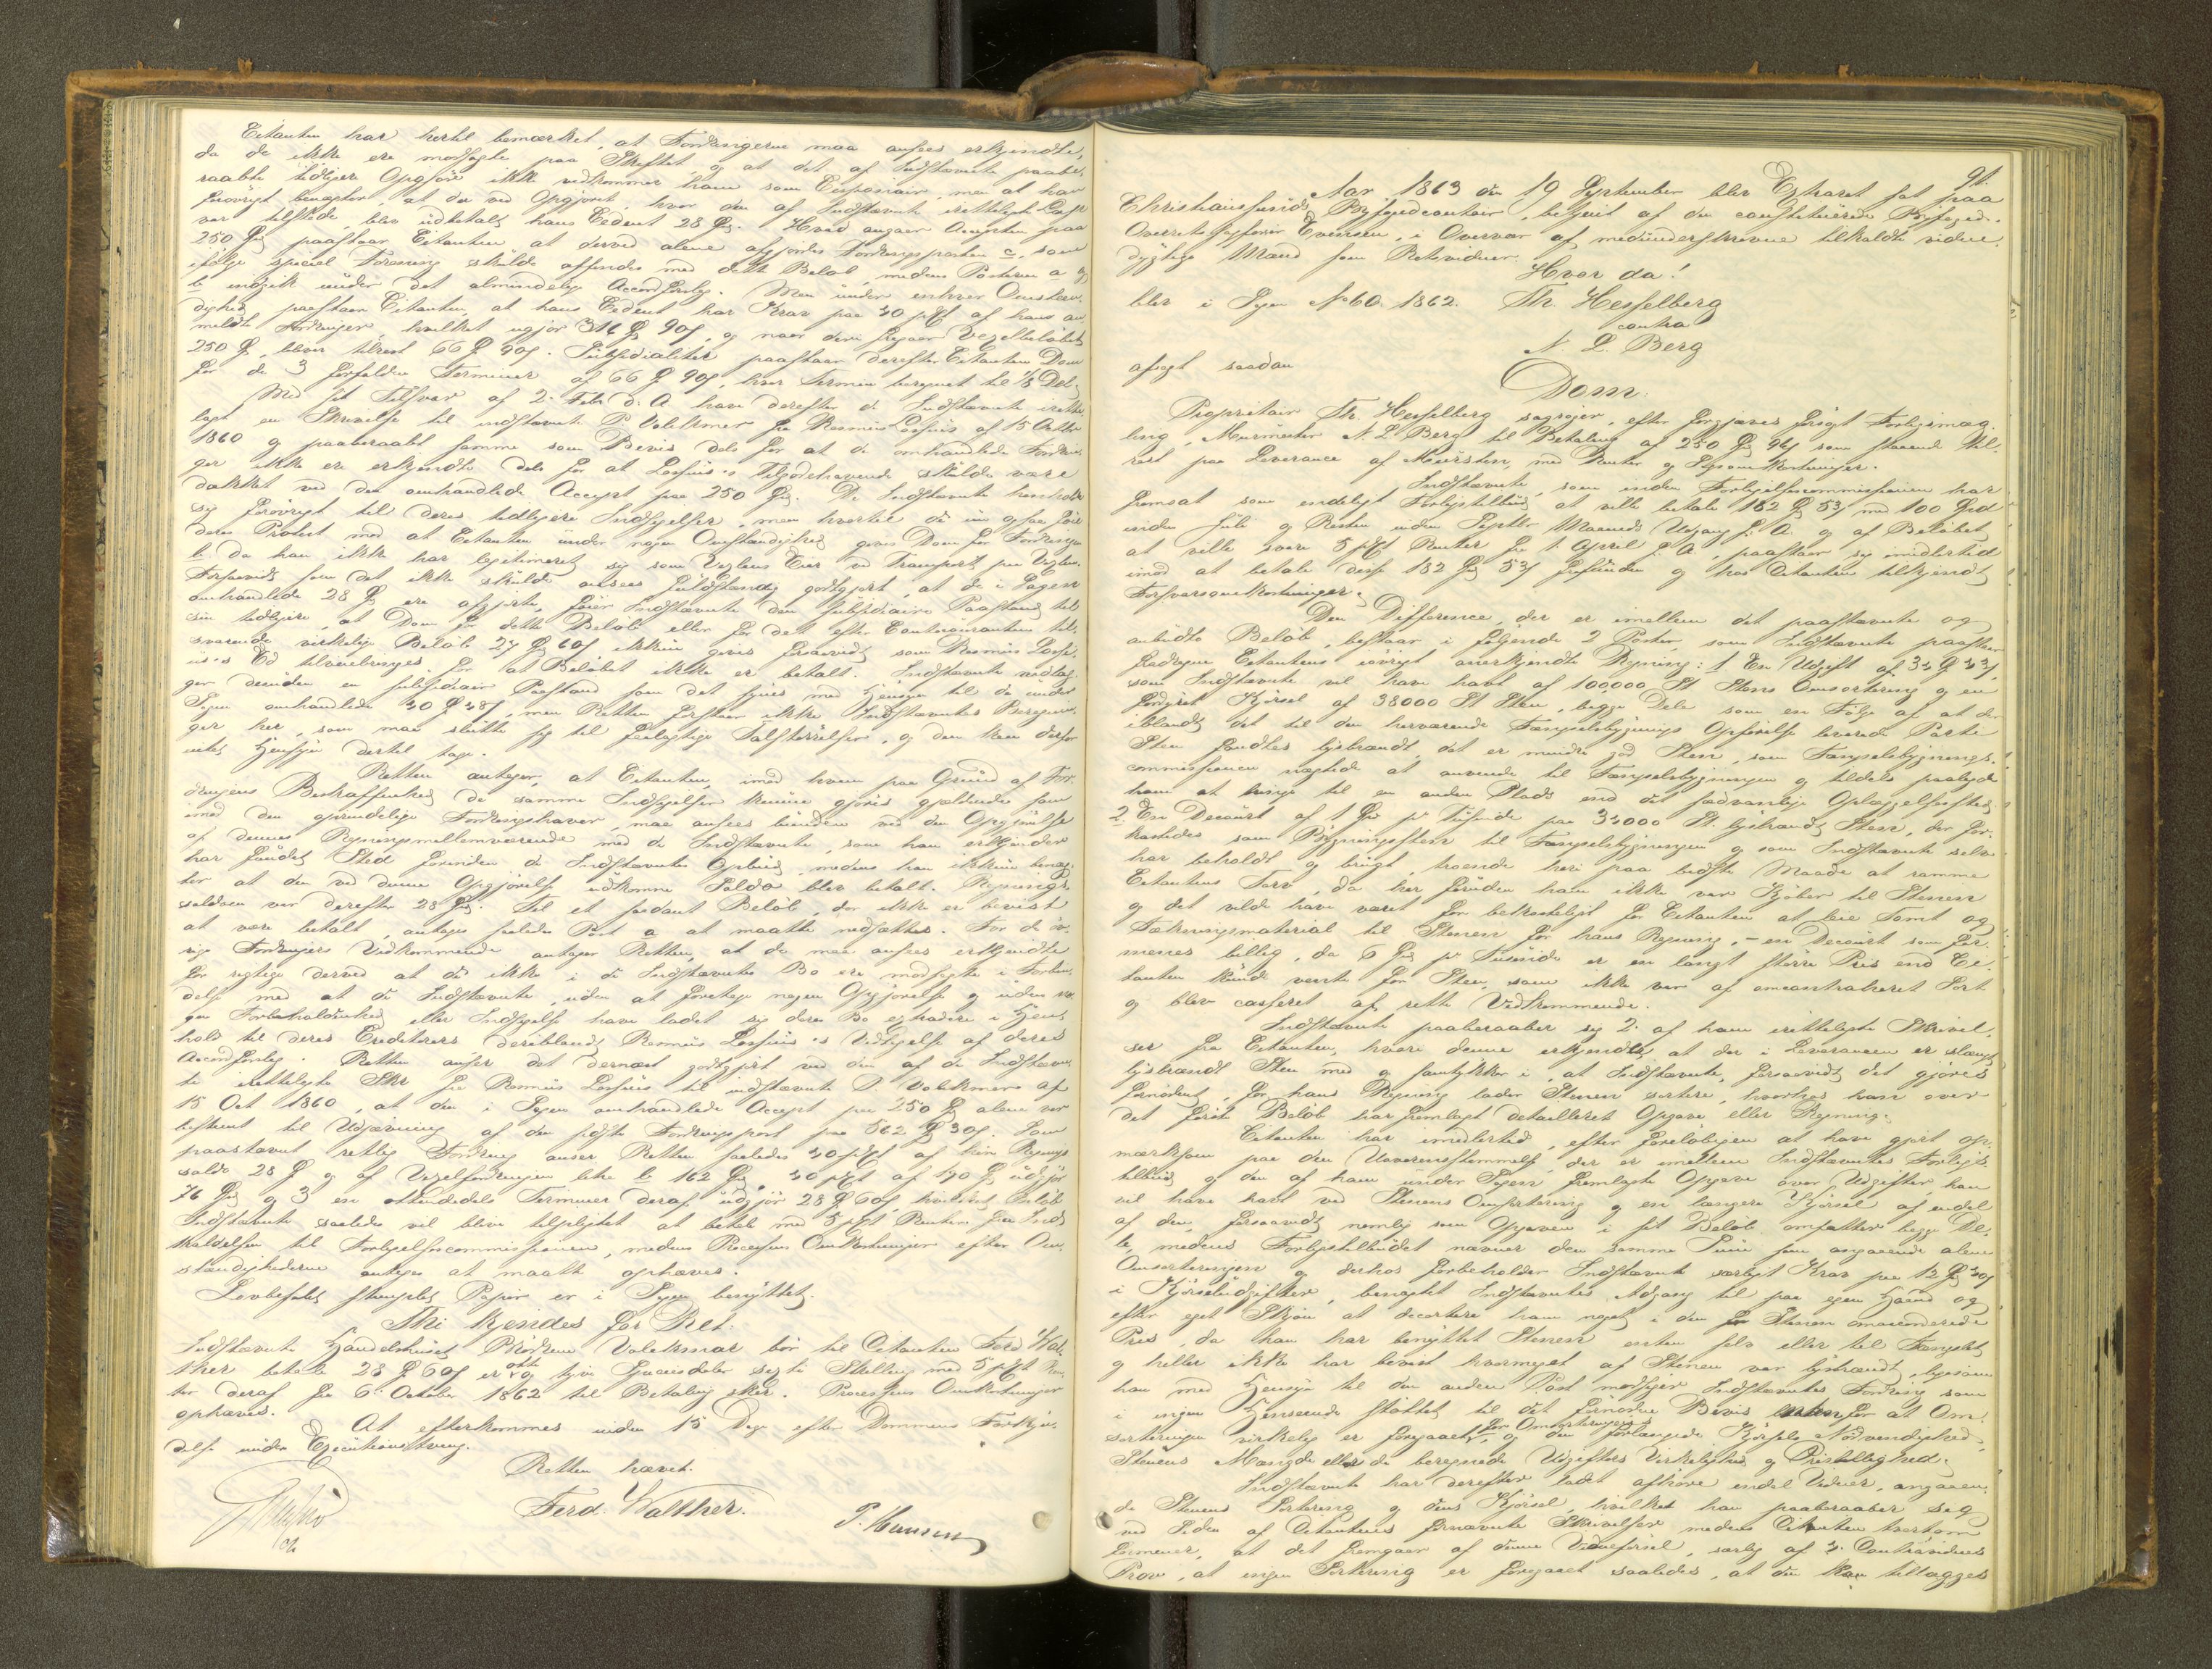 Citanten har hertil bemærket, at Fordringerne maa ansees erkjendte,
da de ikke ere modsagte paa Skiftet og at det af Indstævnte paabe-
raabte tidligere Opgjør ikke vedkommer ham som Cessionair, men at han
forøvrigt benægter, at der ved Opgjøret, hvor den af Indstævnte irettelagte
var tilstede, blev udbetalt hans Cedent 28 Spd. Hvad angaar Accepten paa
250 Spd paastaar Citanten at derved alene afgjordes Fordringsposten c, som
ifølge speciel Forening skulde affindes med dette Beløb, medens Posterne a og
b indgik under det almindelige Accordforslag. Men under enhver Omstæn-
dighed paastaar Citanten, at hans Cedent har Krav paa 40 pCt af hans an-
meldte Fordringer, hvilket udgjør 316 Spd 90 s, og naar deri fragaar Vexelbeløbet
250 Spd, bliver tilrest 66 Spd 90 s. Subsidialiter paastaar derefter Citanten Dom
for de 3 forfaldne Terminer af 66 Spd 90 s, hver Termin beregnet til 1/8 Del.
Med sit Tilsvar af 2. Febr d. A. have derefter de Indstævnte irette-
lagt en Skrivelse til indstævnte P. Volckmar fra Rasmus Lossius af 15 Octbr
1860 og paaberaabt samme som Bevis dels for at de omhandlede Fordrin-
ger ikke ere erkjendte dels for at Lossius's Tilgodehavende skulde være
dækket ved den omhandlede Accept paa 250 Spd. De Indstævnte henholde
sig forøvrigt til deres tidligere Indsigelser, men hvortil de
deres Protest mod at Citanten under nogen Omstændighed gives Dom for Fordringen
b da han ikke har legitimeret sig som Vexlens Eier ved Transport paa Vexlen.
Forsaavidt som det ikke skulde ansees fuldstændig godtgjort, at de i Sagen
omhandlede 28 Spd ere afgjorte, føier Indstævnte den subsidiaire Paastand til
sin tidligere, at Dom for dette Beløb eller for det efter Contracitanten til-
svarende virkelige Beløb 27 Spd 60 s ikkun gives forsaavidt som Rasmus Lossi-
us's Ed tilveiebringes for at Beløbet ikke er betalt. Indstævnte nedlæg-
ger desuden en subsidiair Paastand som det synes med Hensyn til de under
Sagen omhandlede 40 Spd 48 s, men Retten forstaar ikke Indstævntes Beregnin-
ger her, som maa støtte sig til feilagtige Talstørrelser, og den kan derfor
intet Hensyn dertil tage.
Retten antager, at Citanten, imod hvem paa Grund af For-
dringens Beskaffenhed de samme Indsigelser kunne gjøres gjældende som
imod den oprindelige Fordringshaver, maa ansees bunden ved den Opgjørelse
af dennes Regningsmellemværende med de Indstævnte, som han erkjender
har fundet Sted forinden de Indstævntes Opbud, medens han ikkun benæg-
ter at den ved denne Opgjørelse udkomne Saldo blev betalt. Regnings-
saldoen var derefter 28 Spd. Til et saadant Beløb, der ikke er bevist
at være betalt, antages saaledes Post a at maatte nedsættes. For de øv-
rige Fordringers Vedkommende antager Retten, at de maa ansees erkjendte
for rigtige derved at de ikke i de Indstævntes Bo ere modsagte i Forbin-
delse med at de Indstævnte, uden at foretage nogen Opgjørelse og uden no-
gen Forbeholdenhed eller Indsigelse have ladet sig deres Bo extradere i Hen-
hold til deres Creditorers deriblandt Rasmus Lossius's Vedtagelse af deres
Accordforslag. Retten anser det dernæst godtgjort ved den af de Indstævn-
te irettelagte Skr fra Rasmus Lossius til indstævnte P. Volckmar af
15 Oct 1860, at den i Sagen omhandlede Accept paa 250 Spd alene var
bestemt til Udjævning af den sidste Fordringspost paa 562 Spd 30 s. Som
paastævnt retlig Fordring anser Retten saaledes 40 pCt af hin Regnings
saldo 28 Spd og af Vexelfordringen litr b 162 Spd, 40 pCt af 190 Spd udgjør
76 Spd og 3 en ottendedels Terminer deraf udgjør 28 Spd 60 s, hvilket Beløb
Indstævnte saaledes vil blive tilpligtet at betale med 5 pCt Renter fra Ind-
kaldelsen til Forligelsescommissionen, medens Processens Omkostninger efter Om-
stændighederne antages at maatte ophæves.
Lovbefalet stemplet Papir er i Sagen benyttet.
Thi kjendes for Ret:
Indstævnte Handelshuset Brødrene Volckmar bør til Citanten Ferd Wal-
ther betale 28 Spd 60 s otte og tyve Speciedaler sexti Skilling med 5 pCt Ren-
ter deraf fra 6. October 1862 til Betaling sker. Processens Omkostninger
ophæves.
At efterkommes inden 15 Dage efter Dommens Forkyn-
delse under Executionstvang.
Retten hævet.
Ferd. Walther. P. Hansen
91.
Aar 1863 den 19 September blev Extraret sat paa
Christianssunds Byfogedcontoir, betjent af den constituerede Byfoged
Overretssagfører Evensen, i Overvær af medunderskrevne tilkaldte vidne-
dygtige Mænd som Retsvidner.
Hvor da!
blev i Sagen No 60. 1862. Th. Hesselberg
contra
N. L. Berg
afsagt saadan
Dom.
Proprietair Th. Hesselberg sagsøger, efter forgjæves forsøgt Forligsmæg-
ling, Murmester N. L. Berg til Betaling af 250 Spd 94 s som staaende til-
rest paa Leverance af Mursten, med Renter og Sagsomkostninger.
Indstævnte, som inden Forligelsescommissionen har
fremsat som endeligt Forligstilbud at ville betale 182 Spd 53 s med 100 Spd
inden Juli og Resten inden Septbr Maaneds Udgang f. A. og af Beløbet
at ville svare 5 pCt Renter fra 1. April f. A., paastaar sig imidlertid
imod at betale disse 182 Spd 53 s frifunden og hos Citanten tilkjendt
Forsvarsomkostninger.
Den Difference, der er imellem det paastævnte og
anbudte Beløb, bestaar i følgende 2 Poster, som Indstævnte paastaar
fradragne Citantens iøvrigt anerkjendte Regning: 1 En Udgift af 34 Spd 43 s,
som Indstævnte vil have havt af 100,000 St Stens Omsortering og en
forøget Kjørsel af 38000 St Sten, begge Dele som en Følge af at der
iblandt det til den herværende Fængselsbygnings Opførelse leverede Parti
Sten fandtes lysbrændt, det er mindre god Sten, som Fængselsbygnings-
commissionen nægtede at anvende til Fængselsbygningen og tildels paalagde
ham at bringe til en anden Plads end det sædvanlige Oplægsssted,
2. En Decourt af 1 Spd pr Tusinde paa 34000 St. lysbrændt Sten, der for-
kastedes som Bygningssten til Fængselsbygningen og som Indstævnte selv
har beholdt og brugt, troende heri paa bedste Maade at ramme
Citantens Tarv, da her foruden ham ikke var Kjøber til Stenen
og det vilde have været for bekosteligt for Citanten at leie Tomt og
Tækningsmaterial til Stenen for hans Regning, – en Decourt som for-
menes billig, da 6 Spd pr Tusinde er en langt større Pris end Ci-
tanten kunde vente for Sten, som ikke var af omcontraheret Sort
og blev casseret af rette Vedkommende.
Indstævnte paaberaaber sig 2de af ham irettelagte Skrivel-
ser fra Citanten, hvori denne erkjendte, at der i Leverancen er slængt
lysbrændt Sten med og samtykker i, at Indstævnte, forsaavidt det gjøres
fornødent, for hans Regning lader Stenen sortere, hvorhos han over
det første Beløb har fremlagt detailleret Opgave eller Regning.
Citanten har imidlertid, efter foreløbigen at have gjort op-
mærksom paa den Uoverensstemmelse, der er imellem Indstævntes Forligs-
tilbud og den af ham under Sagen fremlagte Opgave over Udgifter, han
vil have havt ved Stenens Omsortering og en længere Kjørsel af endel
af den, forsaavidt nemlig som Opgaven i sit Beløb omfatter begge De-
le, medens Forligstilbudet nævner den samme Sum som angaaende alene
Omsorteringen og derhos forbeholder Indstævnte særligt Krav paa 12 Spd 40 s
i Kjørseludgifter, benægtet Indstævntes Adgang til paa egen Haand og
efter eget Skjøn at decortere ham noget i den for Stenen omaccorderede
Pris, da han har benyttet Stenen enten selv eller til Fængslet
og heller ikke har bevist hvormeget af Stenen var lysbrændt, ligesom
han med Hensyn til den anden Post modsiger Indstævntes Fordring som
i ingen Henseende støttet til det fornødne Bevis for at Om-
sorteringen virkelig er foregaaet, for Omsorteringens og den forlængede Kjørsels Nødvendighed,
Stenens Mængde eller de beregnede Udgifters Virkelighed og Prisbillighed.
Indstævnte har derefter ladet afhøre endel Vidner, angaaen-
de Stenens Sortering og dens Kjørsel, hvilket han paaberaaber sig
ved Siden af Citantens fornævnte Skrivelser medens Citanten tvertom
formener, at det fremgaar af denne Vidneførsel, særlig af 4. Contravidnes
Prov, at ingen Sortering er foregaaet saaledes, at der kan tillægges